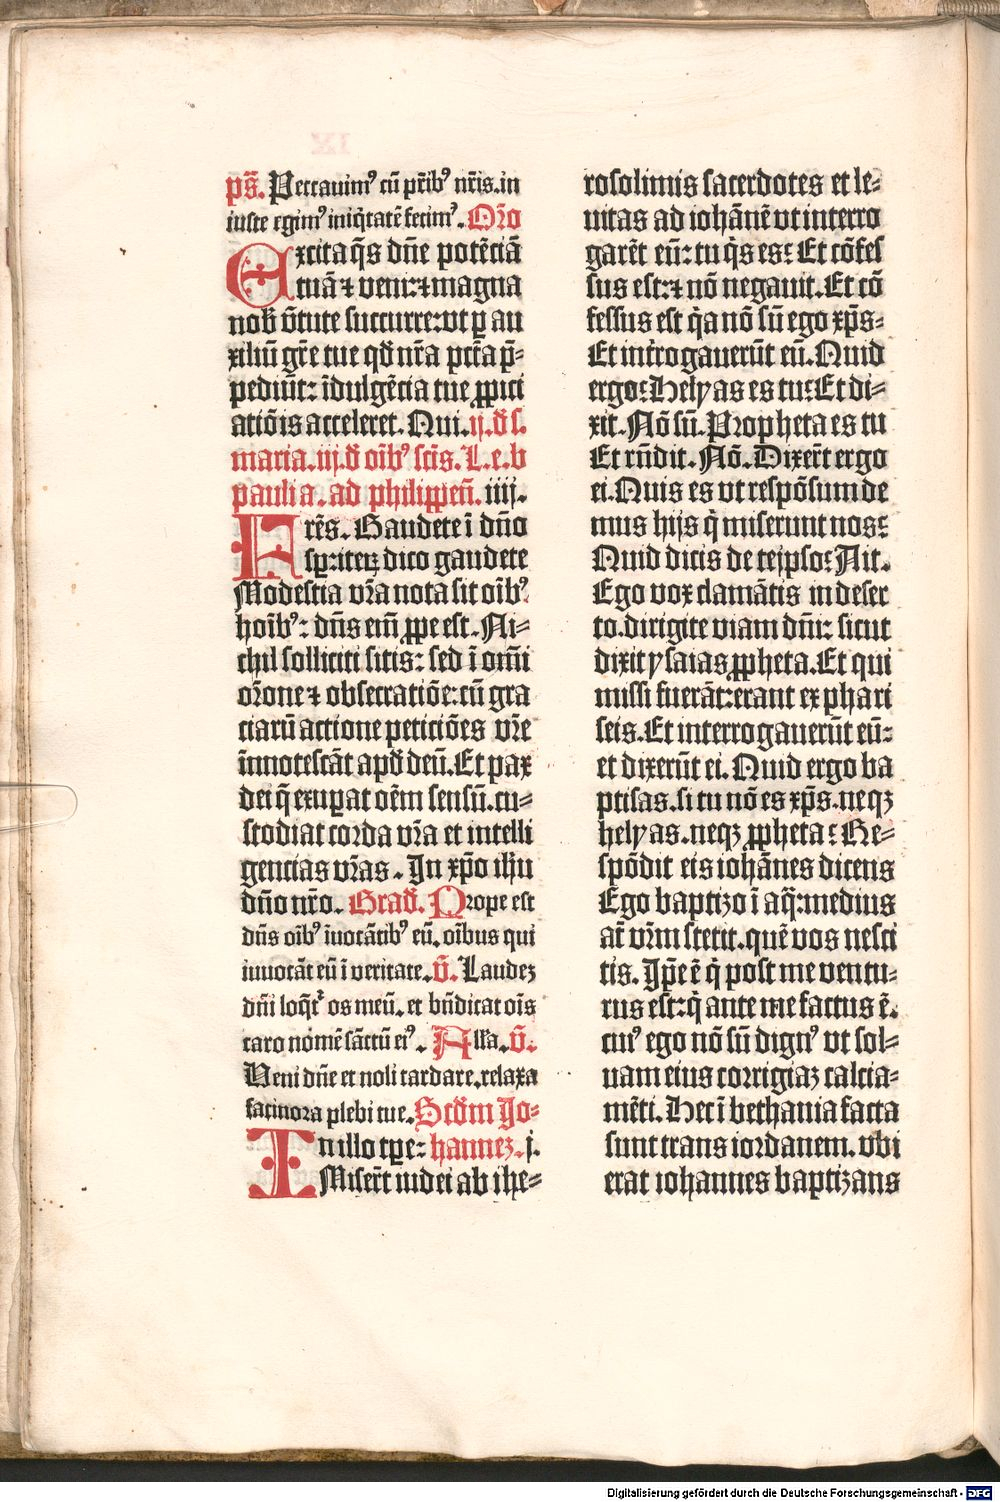 ps̄. Peccauimꝰ cū pr̄ibꝰ nr̄is.in
iuste egimꝰ iniq̄tatē fecimꝰ. Or̄o
Excita q̄s dn̄e potēciā
tuā ⁊ veni:⁊ magna
nob̄ v̄tute succurre:vt p̱ au
xiliū gr̄e tue qd̄ nr̄a pctā p̄-
pediūt: īdulgēcia tue ꝓpici
atiōis acceleret. Qui. ij. d̄ s.
maria. iij. d̄ oīb' sctis. L. e. b
pauli a. ad philippeñ. iiij.
Frēs. Gaudete ī dño
sp̱:iteꝝ dico gaudete
Modestia vr̄a nota sit oīb'
hoīb': dn̄s em̄ ꝓpe est. Ni-
chil solliciti sitis: sed ī om̄i
or̄one ⁊ obsecratiōe:cū gra
ciarū actione peticiōes vr̄e
īnotescāt apd̄ deū. Et pax
dei q̄ exup̱at oēm sensū.cu-
stodiat corda vr̄a et intelli
gencias vr̄as. In xp̄o ih̄u
dño nr̄o. Grad̄. Prope est
dn̄s oīb' īuocātib' eū. oībus qui
inuocāt eū ī veritate. v̄. Laudeꝫ
dn̄i loq̄t᷑ os meū. et bn̄dicat oīs
caro nomē sāctū eiꝰ. Alla. v̄.
Veni dn̄e et noli tardare.relaxa
facinora plebi tue. Scd̄m Jo-
In illo tp̱e: hannez. j.
Miser̄t iudei ab ihe-
rosolimis sacerdotes et le-
uitas ad iohānē vt interro
garēt eū: tu q̄s es? Et cōfes
sus est:⁊ nō negauit. Et cō
fessus est q̄a nō sū ego xp̄s-
Et int̄rogauerūt eū. Quid
ergo? Helyas es tu? Et di-
xit. Nō sū. Propheta es tu
Et rn̄dit. Nō. Dixer̄t ergo
ei. Quis es vt respōsum de
mus hijs q̄ miserunt nos?
Quid dicis de teipso? Ait.
Ego vox clamātis in deser
to.dirigite viam dn̄i: sicut
dixit ysaias ꝓpheta. Et qui
missi fuerāt:erant ex phari
seis. Et interrogauerūt eū:
et dixerūt ei. Quid ergo ba
ptisas.si tu nō es xp̄s.neqꝫ
helyas.neqꝫ ꝓpheta? Re-
spōdit eis iohānes dicens
Ego baptizo ī aq̄:medius
at̄ vr̄m stetit.quē vos nesci
tis. Ip̄e ē q̄ post me ventu-
rus est:q̄ ante me factus ē.
cuiꝰ ego nō sū dignꝰ vt sol-
uam eius corrigiaꝫ calcia-
mēti. Hec ī bethania facta
sunt trans iordanem. vbi
erat iohannes baptizans
Digitalisierung gefördert durch die Deutsche Forschungsgemeinschaft - DFG